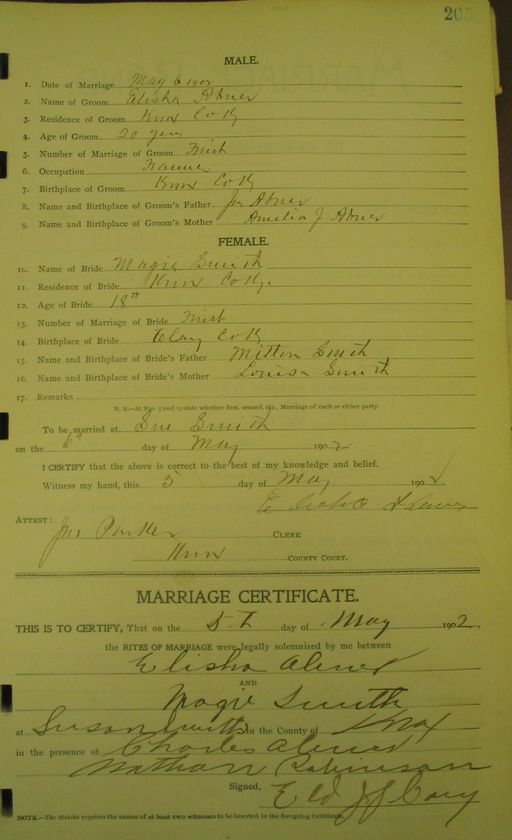 205
MALE.
1. Date of Marriage May 6 1902
2. Name of Groom Elisha Abner
3. Residence of Groom Knox Co Ky
4. Age of Groom 20 yers
5. Number of Marriage of Groom First
6. Occupation Farmer
7. Birthplace of Groom Knox Co Ky
8. Name and Birthplace of Groom's Father Jno Abner
9. Name and Birthplace of Groom's Mother Amelia J Abner
FEMALE.
10. Name of Bride Magie Smith
11. Residence of Bride Knox Co Ky.
12. Age of Bride 18
13. Number of Marriage of Bride First
14. Birthplace of Bride Clay Co Ky
15. Name and Birthplace of Bride's Father Milton Smith
16. Name and Birthplace of Bride's Mother Louisa Smith
17. Remarks
N. B.—At Nos. 5 and 13 state whether first, second, etc., Marriage of each or either party.
To be married at Sue Smith
on the 6 day of May 1902
I CERTIFY that the above is correct to the best of my knowledge and belief.
Witness my hand, this 5 day of May 1902
ATTEST:
Jno Parker CLERK
Knox COUNTY COURT.
MARRIAGE CERTIFICATE.
THIS IS TO CERTIFY, That on the day of May 1902.
the RITES OF MARRIAGE were legally solemnized by me between
Elisha Abner
AND
Magie Smith
at Susan Smiths in the County of Knox
in the presence of Charles Abner
Nathan Robinson
Signed, Eld
NOTE.—The Statute requires the names of at least two witnesses to be inserted in the foregoing Certificate.